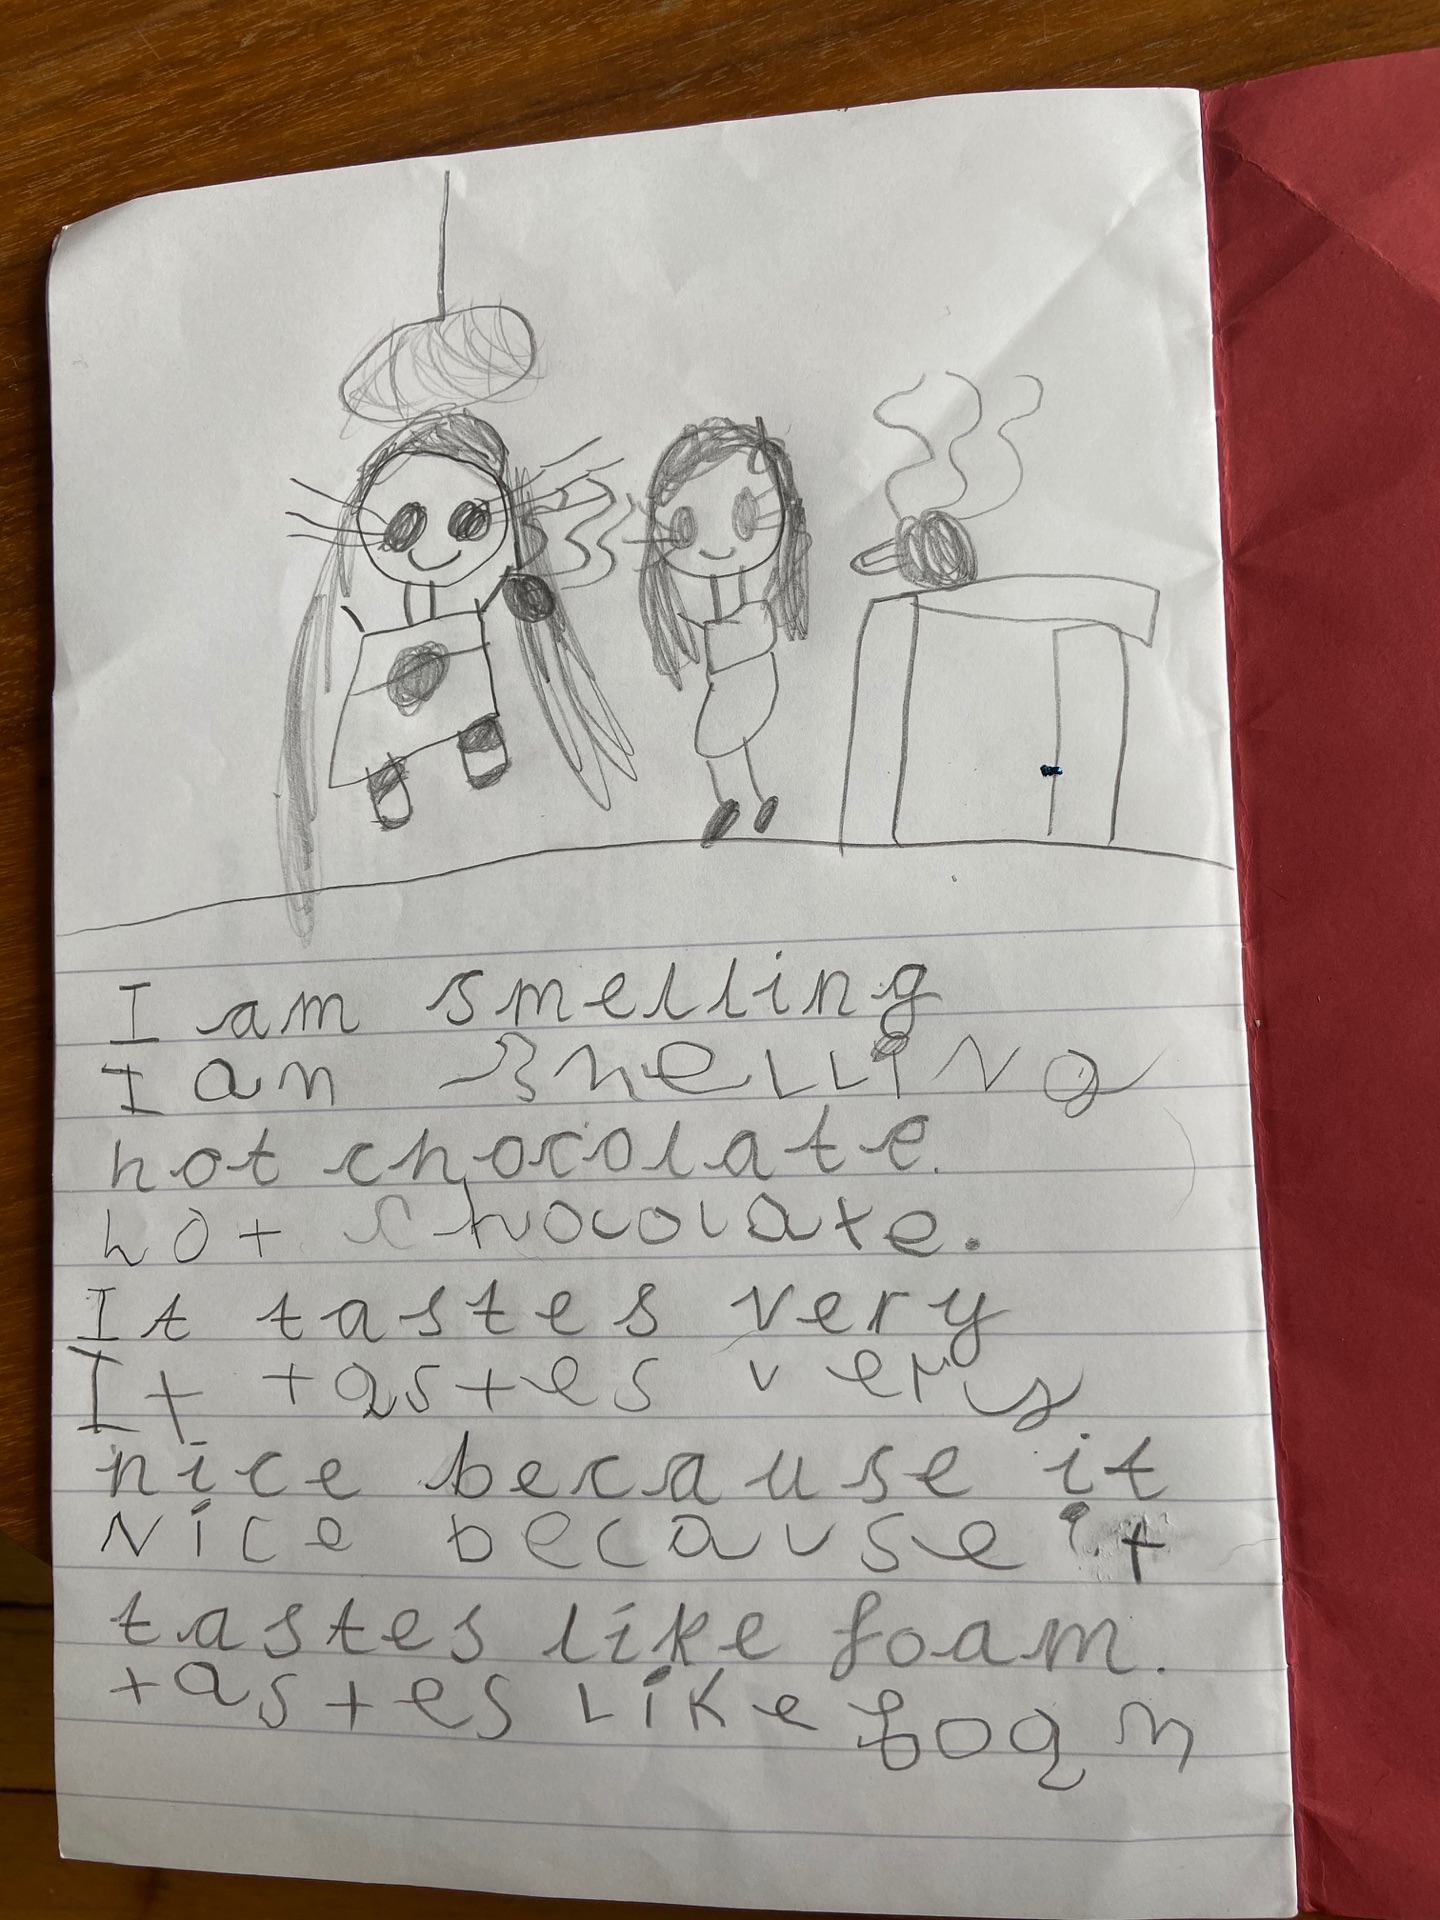 I am smelling
I am smelling
hot chocolate.
hot chocolate.
It tastes very
It tastes very
nice because it
nice because it
tastes like foam.
tastes like foam